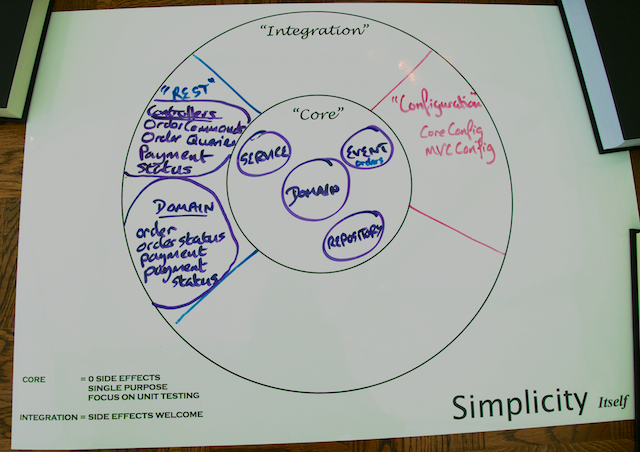 "Integration"
"REST"
Controllers
Order Commands
Order Queries
Payment
Status
DOMAIN
order
order status
payment
payment
status
"Core"
SERVICE
EVENT
orders
DOMAIN
REPOSITORY
"Configuration"
Core Config
MVC Config
CORE = 0 SIDE EFFECTS
SINGLE PURPOSE
FOCUS ON UNIT TESTING
INTEGRATION = SIDE EFFECTS WELCOME
Simplicity Itself